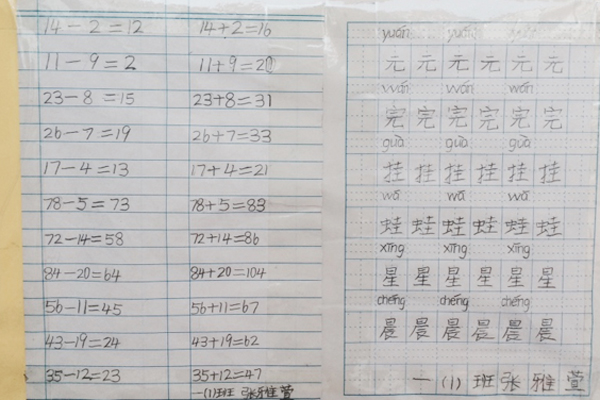 14-2=12 14+2=16
11-9=2 11+9=20
23-8=15 23+8=31
26-7=19 26+7=33
17-4=13 17+4=21
78-5=73 78+5=83
72-14=58 72+14=86
84-20=64 84+20=104
56-11=45 56+11=67
43-19=24 43+19=62
35-12=23 35+12=47
一(1)班 张雅萱
yuán yuán yuán
元元元元元元
wán wán wán
完完完完完完
guà guà guà
挂挂挂挂挂挂
wā wā wā
蛙蛙蛙蛙蛙蛙
xīng xīng xīng
星星星星星星
chéng chéng chéng
晨晨晨晨晨晨
一(1)班张雅萱